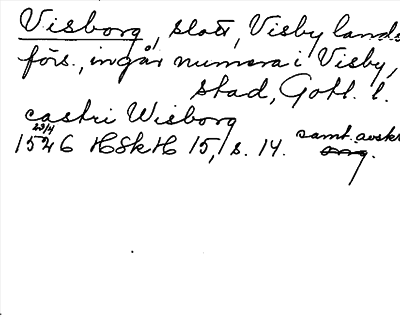 Visborg, slott, Visby lands
förs., ingår numera i Visby,
stad, Gotl. l.
castri Wisborg
1526 23/4 HSkH 15, s. 14. samt. avskr.
org.